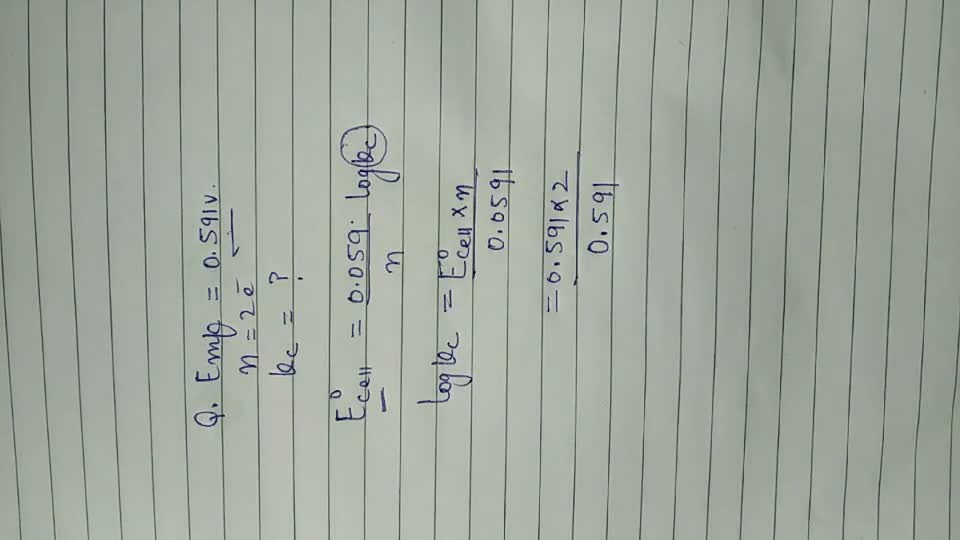 Q. Emf = 0.591v.
n = 2e⁻
kc = ?
E°cell = 0.059. log kc
n
log kc = E°cell × n
0.0591
= 0.591 × 2
0.591